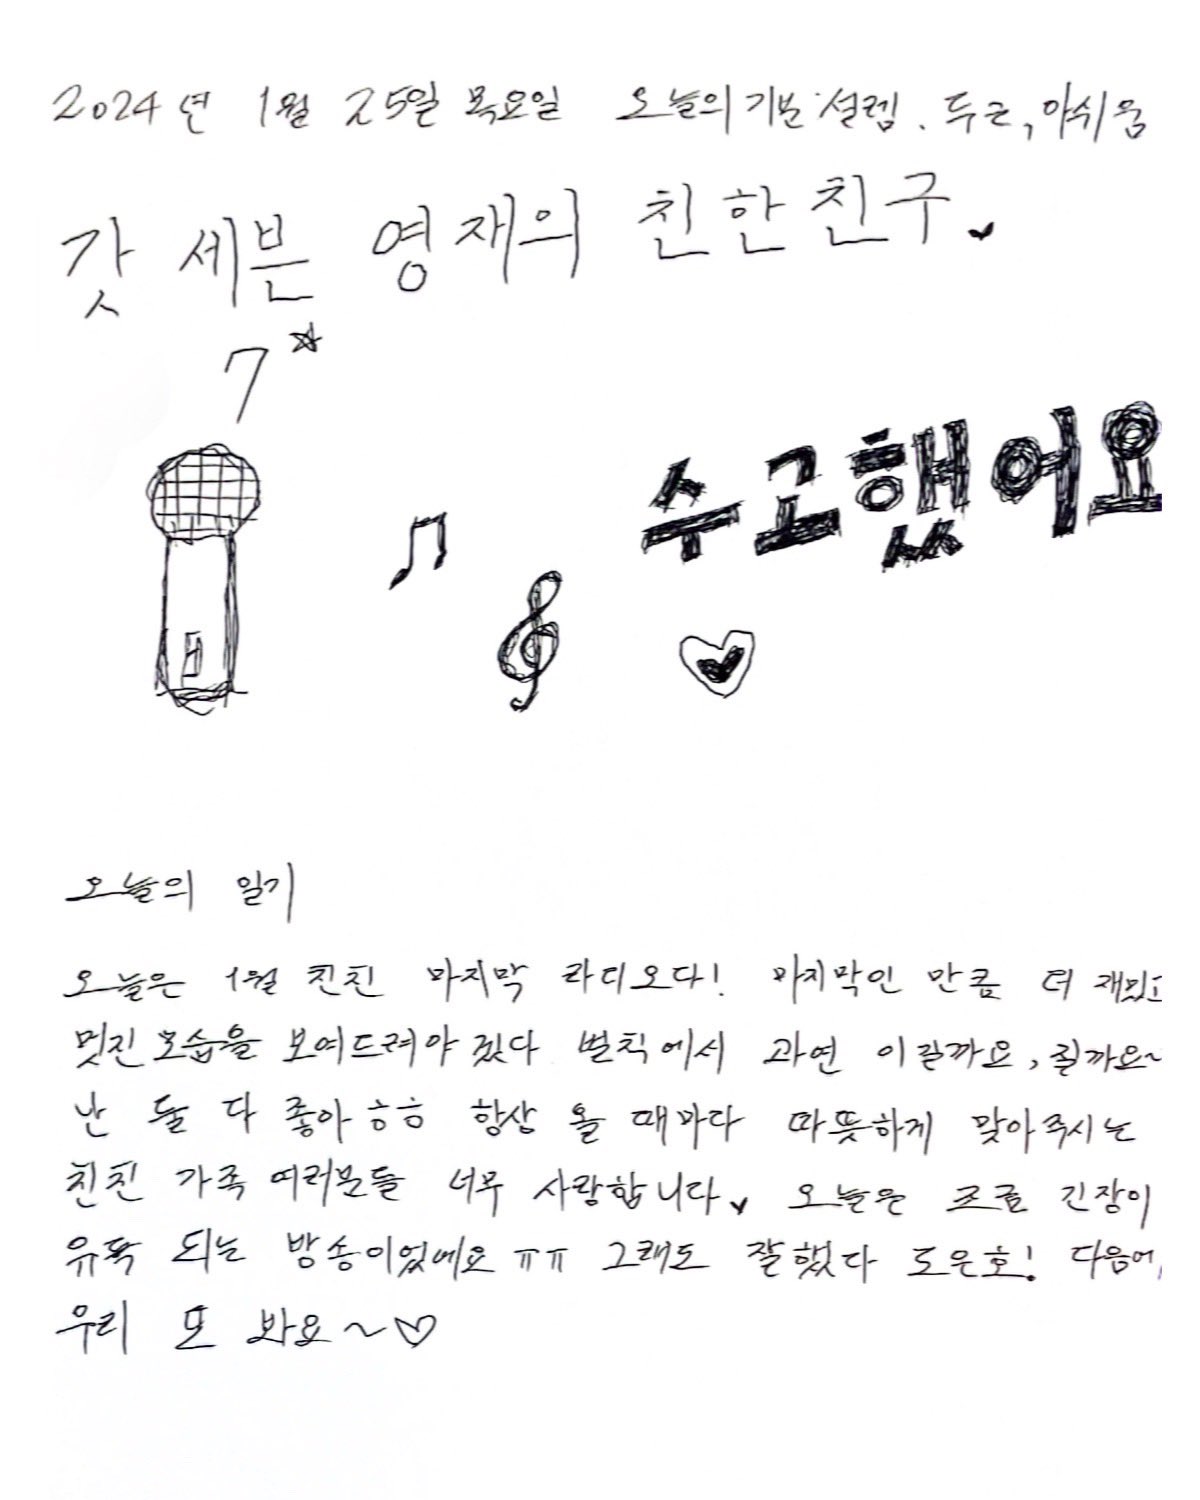 2024년 1월 25일 목요일 오늘의 기분: 설렘. 두근, 아쉬움
갓 세븐 영재의 친한친구
7
수고했어요
오늘의 일기
오늘은 1월 친친 마지막 라디오다! 마지막인 만큼 더 재밌고
멋진 모습을 보여드려야 겠다 벌칙에서 과연 이길까요, 질까요~
난 둘 다 좋아 ㅎㅎ 항상 올 때마다 따뜻하게 맞아주시는
친친 가족 여러분들 너무 사랑합니다 오늘은 조금 긴장이
유독 되는 방송이었네요 ㅠㅠ 그래도 잘했다 도은호! 다음에
우리 또 봐요~♡